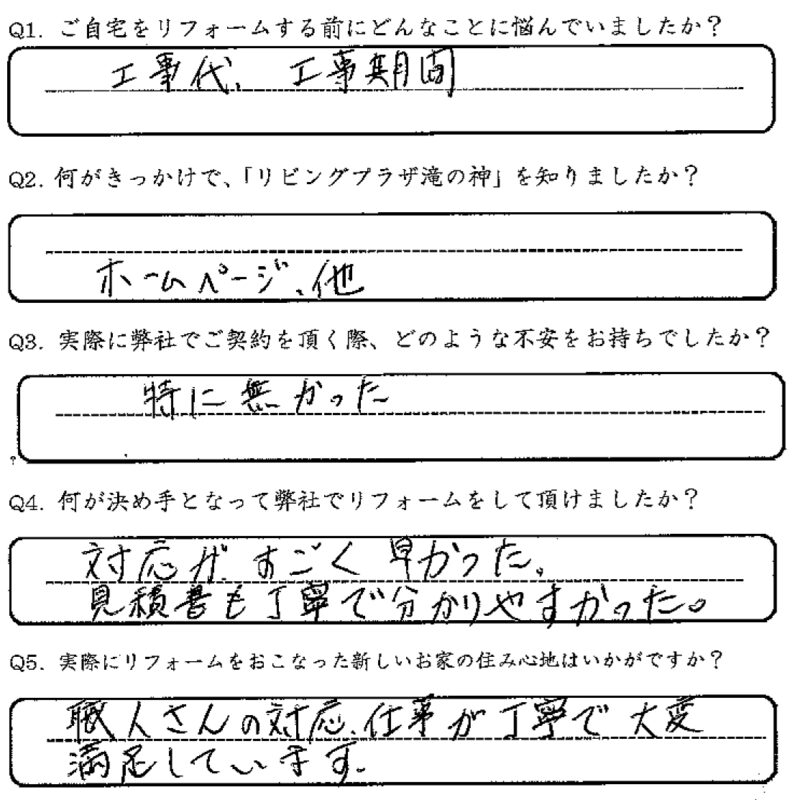 Q1. ご自宅をリフォームする前にどんなことに悩んでいましたか？
工事代、工事期間
Q2. 何がきっかけで、「リビングプラザ滝の神」を知りましたか？
ホームページ、他
Q3. 実際に弊社でご契約を頂く際、どのような不安をお持ちでしたか？
特に無かった
Q4. 何が決め手となって弊社でリフォームをして頂けましたか？
対応がすごく早かった。
見積書も丁寧で分かりやすかった。
Q5. 実際にリフォームをおこなった新しいお家の住み心地はいかがですか？
職人さんの対応、仕事が丁寧で大変
満足しています。